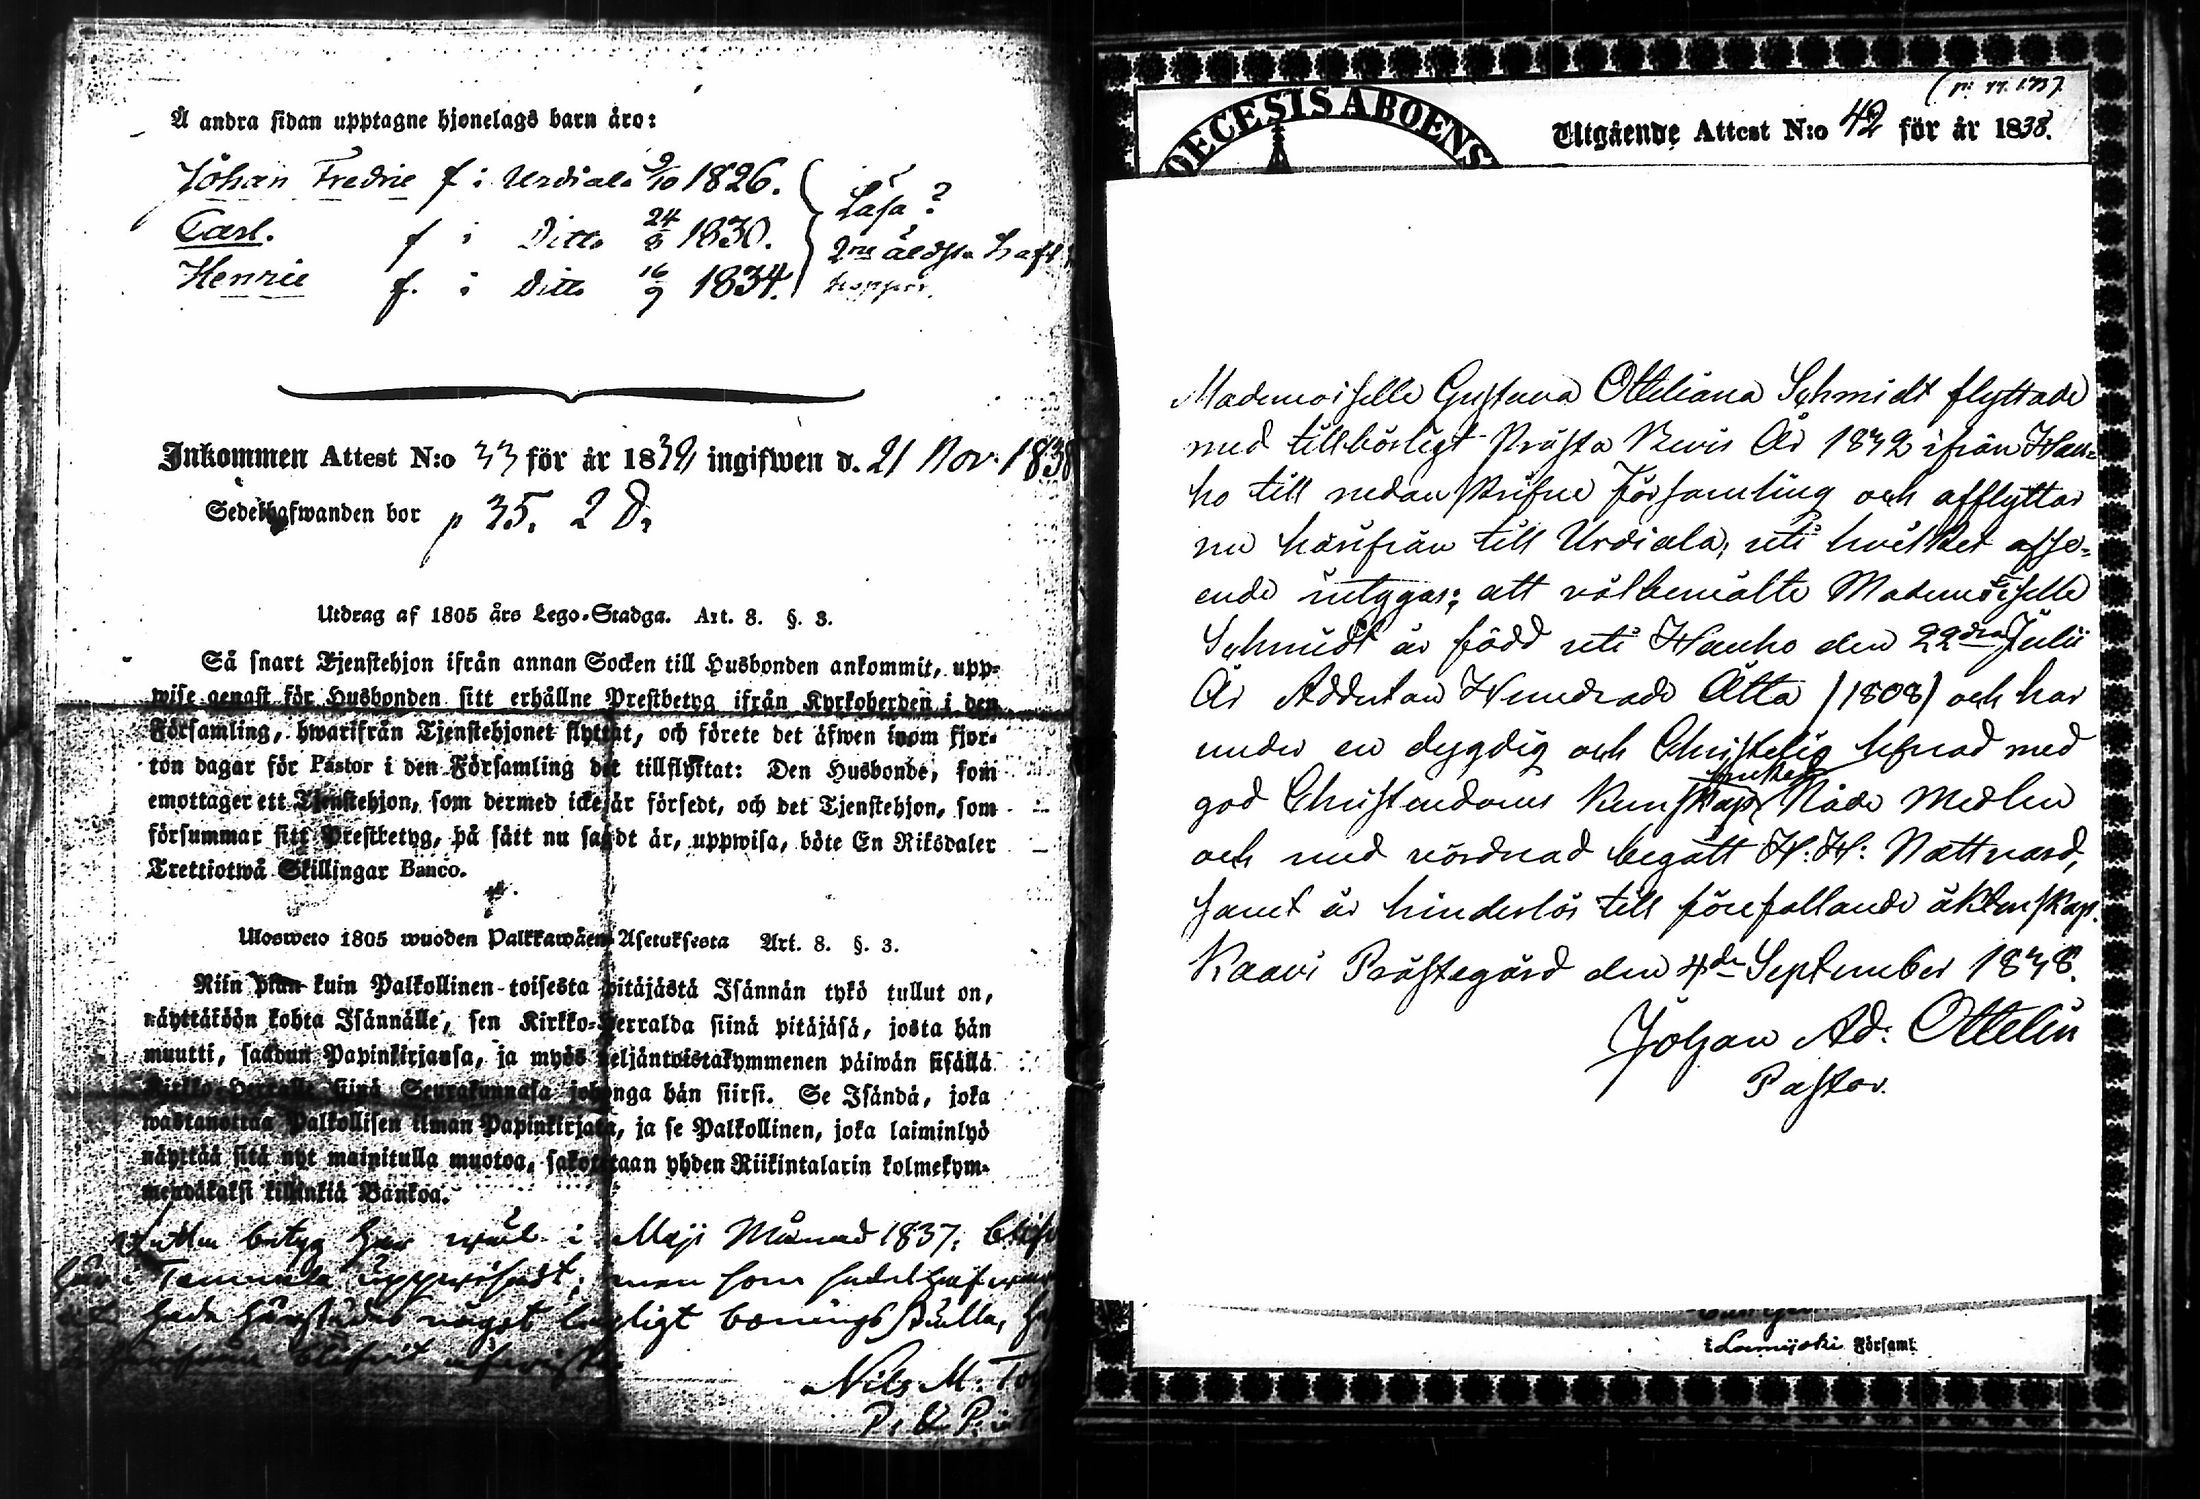 Å andra sidan upptagne hjonelags barn äro:
Johan Fredric f i Urdiala 9/10 1826.
Carl. f i Ditto 24/8 1830.
Henric f. i Ditto 16/9 1834.
Läsa?
2ne äldsta haft
koppor.
Inkommen Attest N:o 33 för år 1838 ingifwen d. 21 Nov. 1838
Sedelhafwanden bor p 35. 2 D.
Utdrag af 1805 års Lego-Stadga. Art. 8. §. 3.
Så snart Tjenstehjon ifrån annan Socken till Husbonden ankommit, upp-
wise genast för Husbonden sitt erhållne Prestbetyg ifrån Kyrkoherden i den
Församling, hwarifrån Tjenstehjonet flyttat, och förete det äfwen inom fjor-
ton dagar för Pastor i den Församling det tillflyttat: Den Husbonde, som
emottager ett Tjenstehjon, som dermed icke är försedt, och det Tjenstehjon, som
försummar sitt Prestbetyg, på sätt nu sagdt är, uppwisa, böte En Riksdaler
Trettiotwå Skillingar Banco.
Ulosweto 1805 wuoden Palkkawäen Asetuksesta Art. 8. §. 3.
Niin pian kuin Palkollinen toisesta pitäjästä Isännän tykö tullut on,
näyttäköön kohta Isännälle, sen Kirkko-Herralda siinä pitäjäsä, josta hän
muutti, saadun Papinkirjansa, ja myös neljäntoistakymmenen päiwän sisällä
Kirkko-Herralle siinä Seurakunnasa johonga hän siirsi. Se Isändä, joka
wastanottaa Palkollisen ilman Papinkirjata, ja se Palkollinen, joka laiminlyö
näyttää sitä nyt mainitulla muotoa, sakotetaan yhden Riikintalarin kolmekym-
mendäkaksi killinkiä Bankoa.
betyg har wäl i Maji Månad 1837.
i Tammela uppwisadt; men som sedelhafwan
hade härstädes något lagligt boningsställe,
Nils M.
(p: 173)
DECESIS ABOENS
Utgående Attest N:o 42 för år 1838.
Mademoiselle Gustava Otteliana Schmidt flyttade
med tillbörligt Prästa Bevis År 1832 ifrån Hau-
ho till nedanskrifne Församling och afflyttar
nu härifrån till Urdiala, uti hvilket afse-
ende intygas; att välbemälte Mademoiselle
Schmidt är född uti Hauho den 22dra Julii
År Adderton Hundrade Åtta (1808) och har
under en dygdig och Christelig lefnad med
god Christendoms Kunskap brukat Nåde Medlen
och med vördnad begått H: H: Nattvard,
samt är hinderlös till förefallande äktenskap.
Kaavi Prästegård den 4de September 1838.
Johan Ad: Ottelin
Pastor.
i Lamijoki Församl.